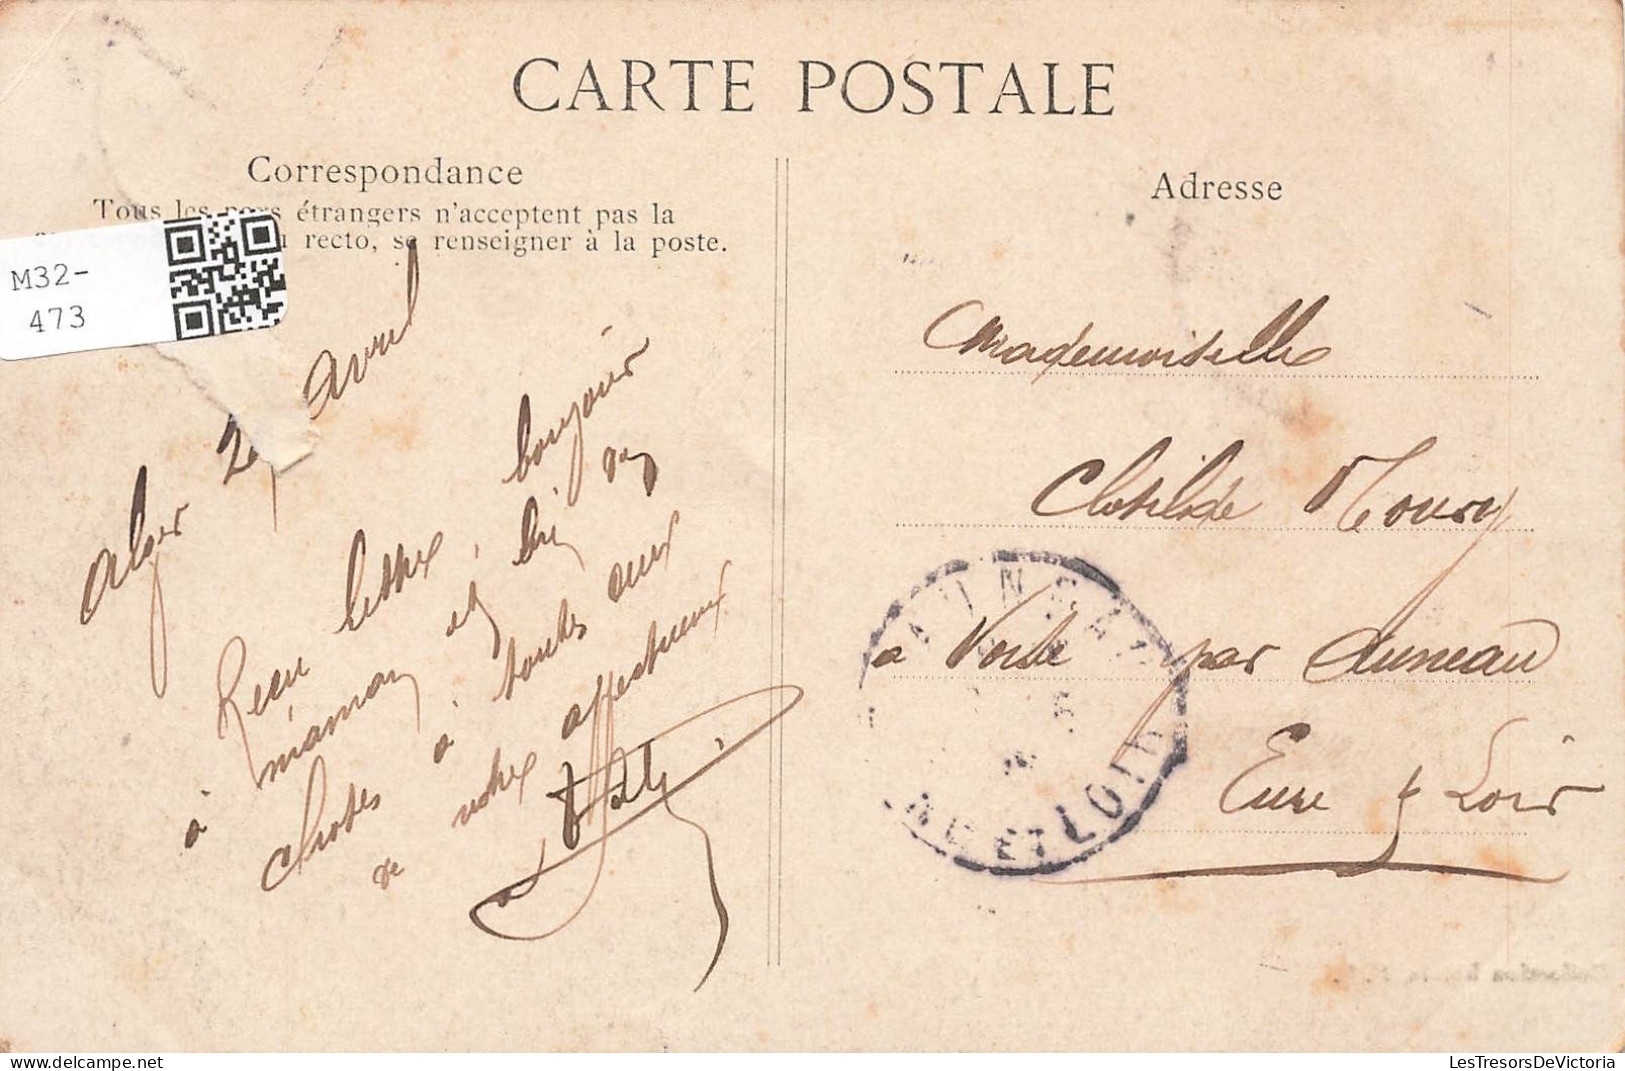 CARTE POSTALE
Correspondance
Tous les pays étrangers n'acceptent pas la
recto, se renseigner à la poste.
M32-
473
Alger 2 avril
Recu lettre, bonjour
à maman et bien des
choses à toutes deux
de votre affectueux
Adresse
Mademoiselle
Clotilde Moury
à Voise par Auneau
Eure & Loir
LOIR
LesTresorsDeVictoria